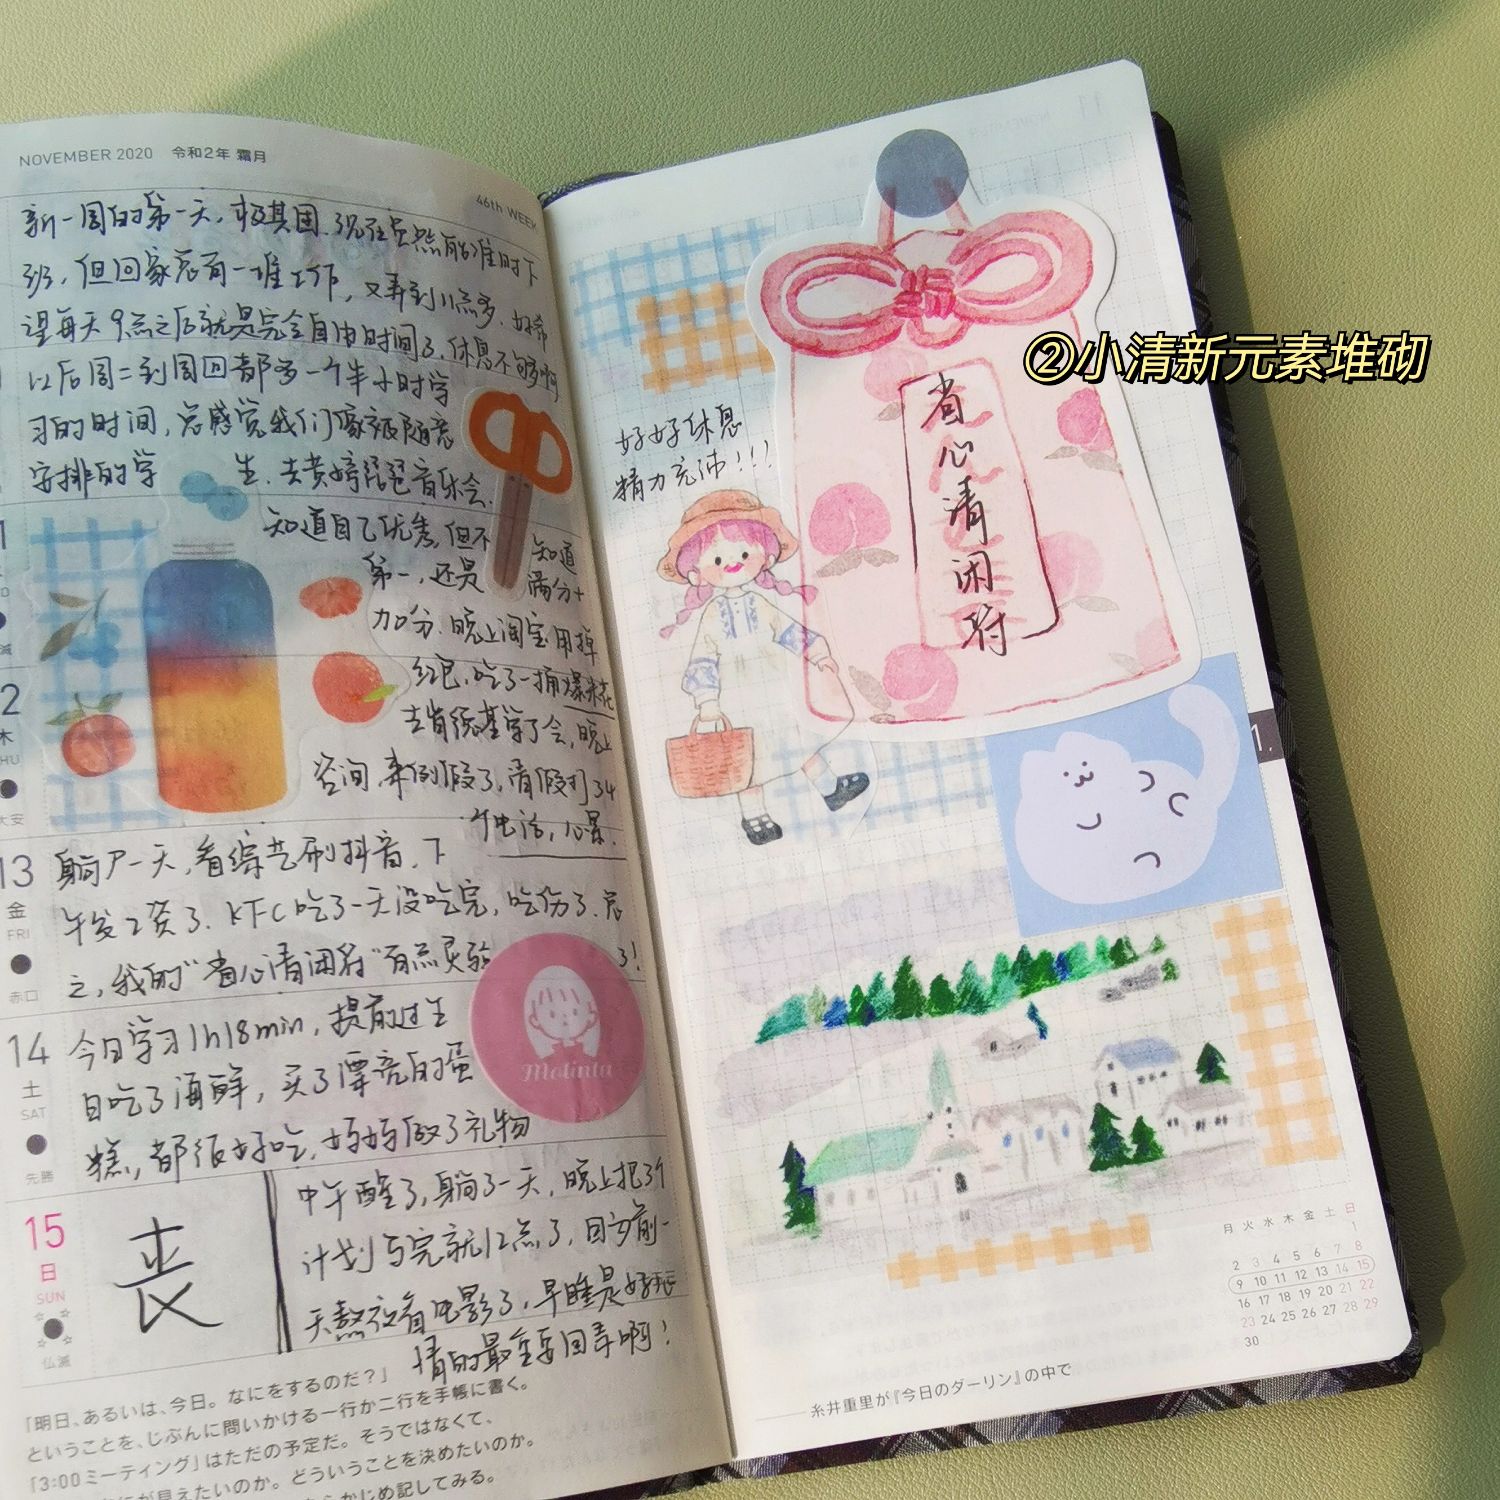 NOVEMBER 2020 令和2年 霜月
46th WEEK
新一周的第一天,极其困.现在虽然能准时下
班,但回家后有一堆工作,又弄到11点多.好希
望每天9点之后就是完全自由时间了,休息不够啊
以后周二到周四都多一个半小时学
习的时间,总感觉我们像被随意
安排的学生.去黄婷琵琶音乐会.
知道自己优秀,但不知道
第一,还是满分+
加分.晚上淘宝用掉
红包,吃了一桶爆米花
去肖统基学了会,晚上
咨询,来例假了,请假打34
个电话,心累.
13
金
FRI
赤口
躺尸一天,看综艺刷抖音.下
午发工资了.KFC吃了一天没吃完,吃伤了.总
之,我的"省心清闲符"有点灵验了!
14
土
SAT
先勝
今日学习1h18min,提前过生
日吃了海鲜,买了漂亮的蛋
糕,都很好吃,妈妈做了礼物
Molinta
15
日
SUN
仏滅
丧
中午醒了,躺了一天,晚上把3个
计划写完就12点了,因为前一
天熬夜看电影了,早睡是好心
情的最重要因素啊!
「明日、あるいは、今日。なにをするのだ?」
ということを、じぶんに問いかける一行か二行を手帳に書く。
「3:00ミーティング」はただの予定だ。そうではなくて、
が見えたいのか。どういうことを決めたいのか。
かじめ記してみる。
②小清新元素堆砌
好好休息
精力充沛!!!
省心清闲符
1.
月 火 水 木 金 土 日
1
2 3 4 5 6 7 8
9 10 11 12 13 14 15
16 17 18 19 20 21 22
23 24 25 26 27 28 29
30
糸井重里が『今日のダーリン』の中で